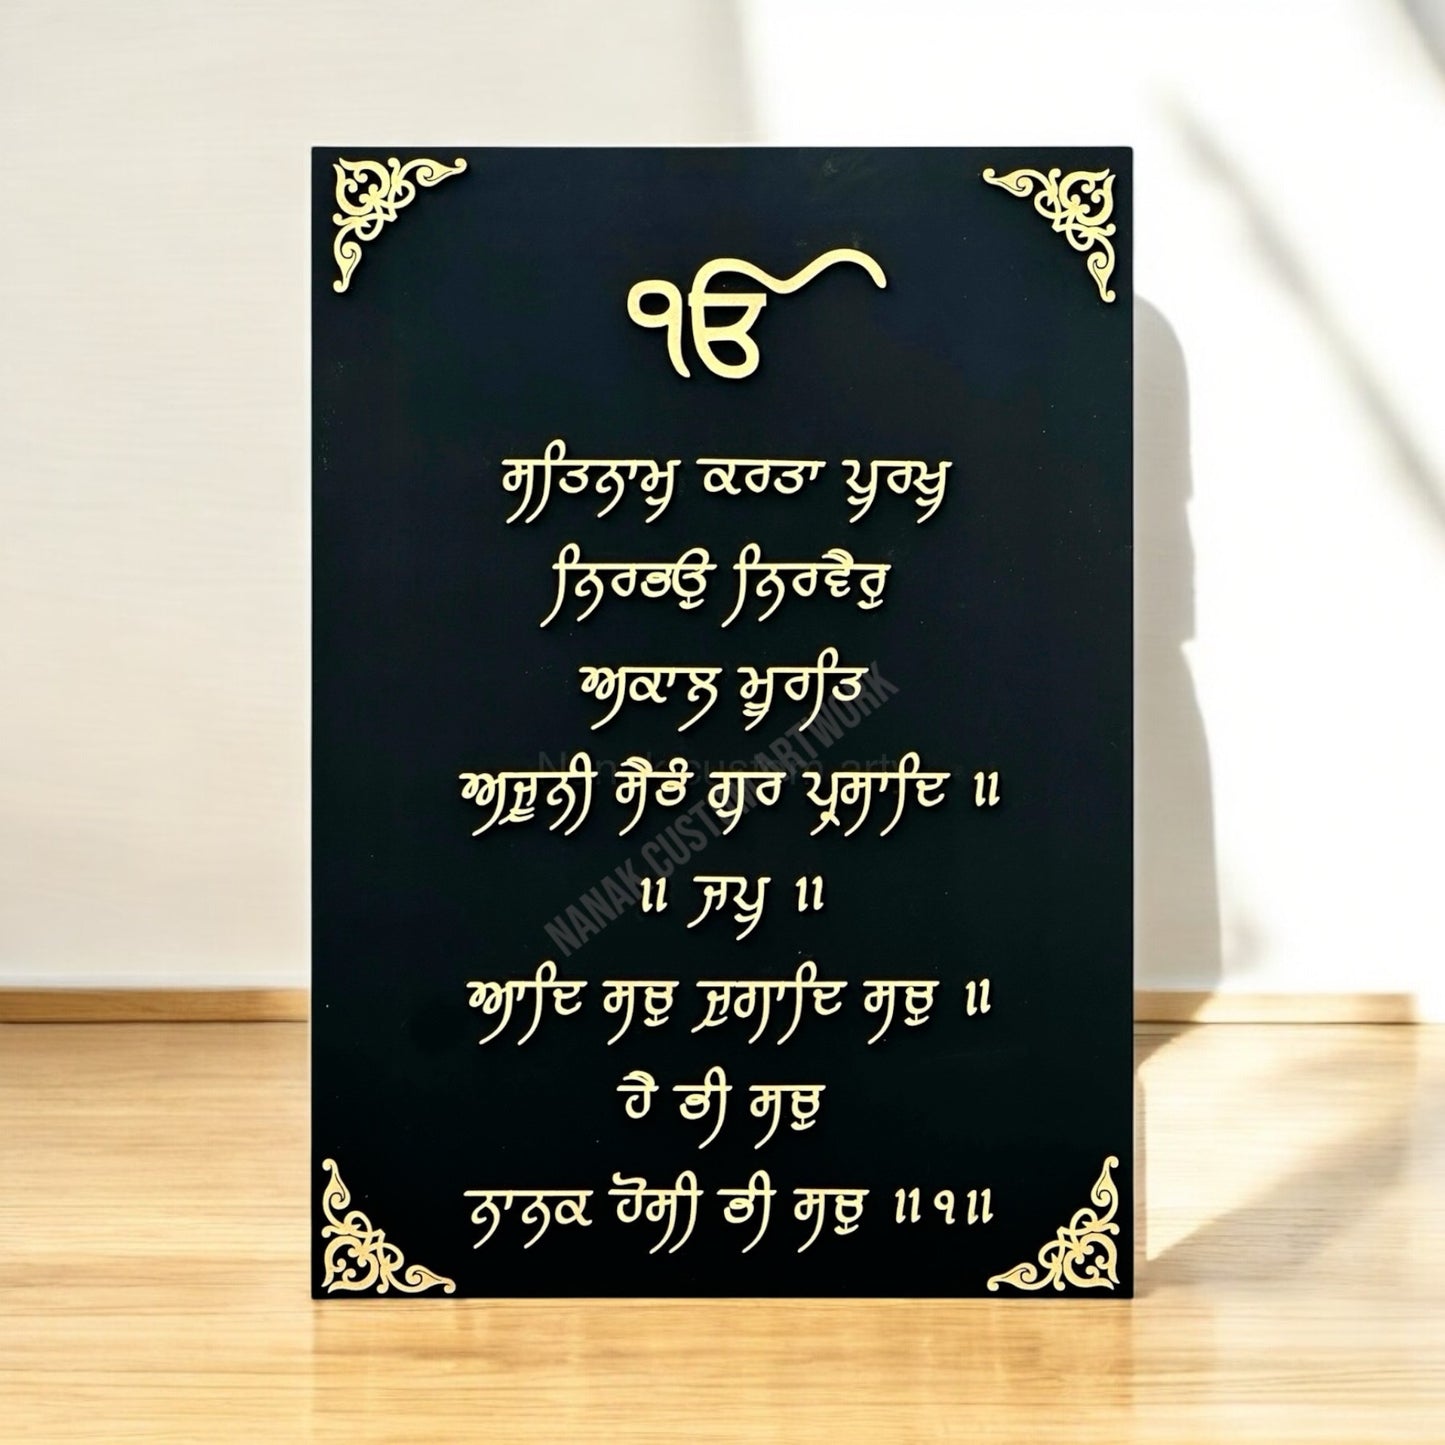 ੴ
ਸਤਿਨਾਮੁ ਕਰਤਾ ਪੁਰਖੁ
ਨਿਰਭਉ ਨਿਰਵੈਰੁ
ਅਕਾਲ ਮੂਰਤਿ
ਅਜੂਨੀ ਸੈਭੰ ਗੁਰ ਪ੍ਰਸਾਦਿ ॥
॥ ਜਪੁ ॥
ਆਦਿ ਸਚੁ ਜੁਗਾਦਿ ਸਚੁ ॥
ਹੈ ਭੀ ਸਚੁ
ਨਾਨਕ ਹੋਸੀ ਭੀ ਸਚੁ ॥੧॥
NANAK CUSTOM ARTWORK
Nanak custom artw